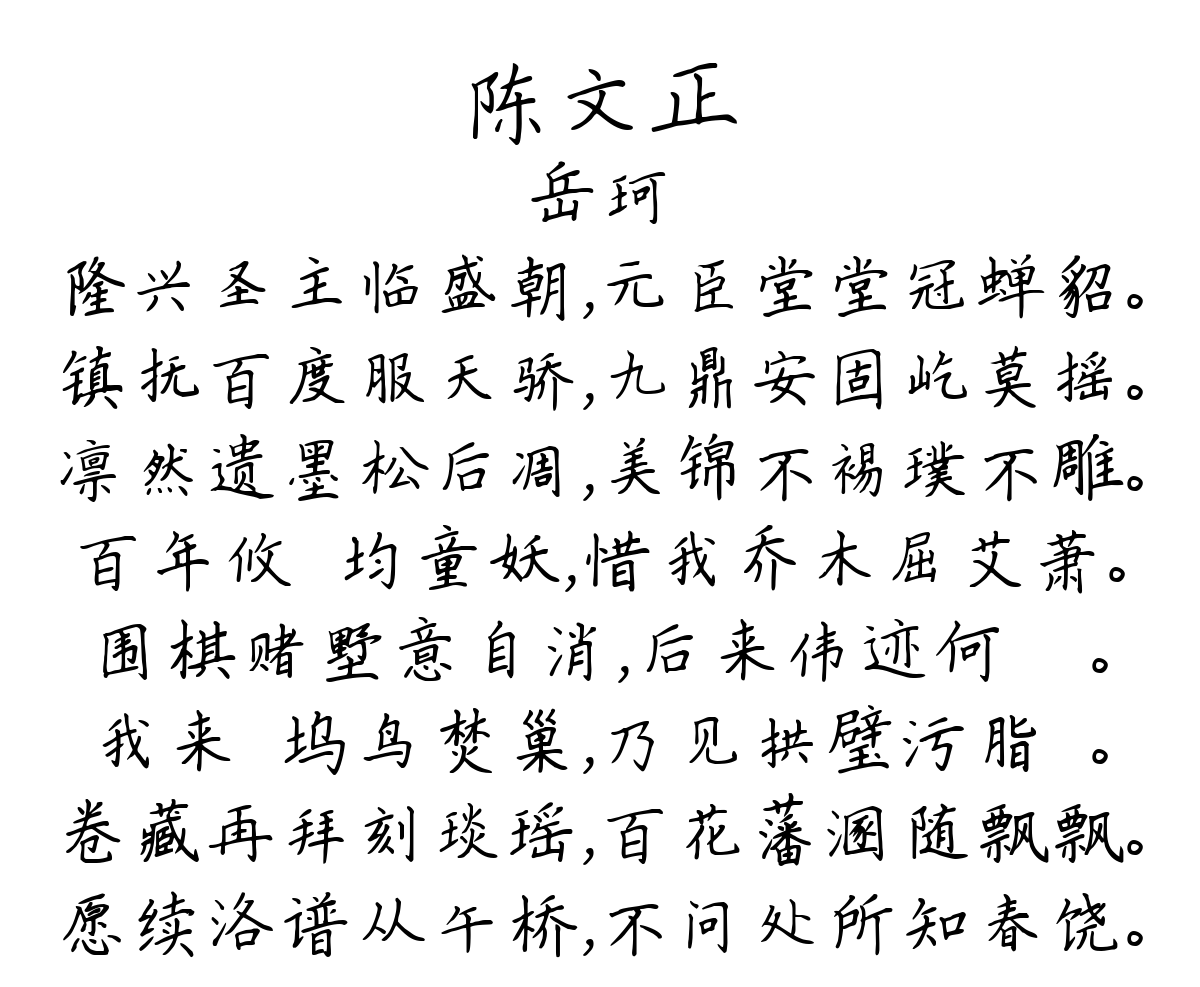 陈文正
岳珂
隆兴圣主临盛朝,元臣堂堂冠蝉貂。
镇抚百度服天骄,九鼎安固屹莫摇。
凛然遗墨松后凋,美锦不裼璞不雕。
百年攸 均童妖,惜我乔木屈艾萧。
围棋赌墅意自消,后来伟迹何 。
我来 坞鸟焚巢,乃见拱璧污脂 。
卷藏再拜刻琰瑶,百花藩溷随飘飘。
愿续洛谱从午桥,不问处所知春饶。